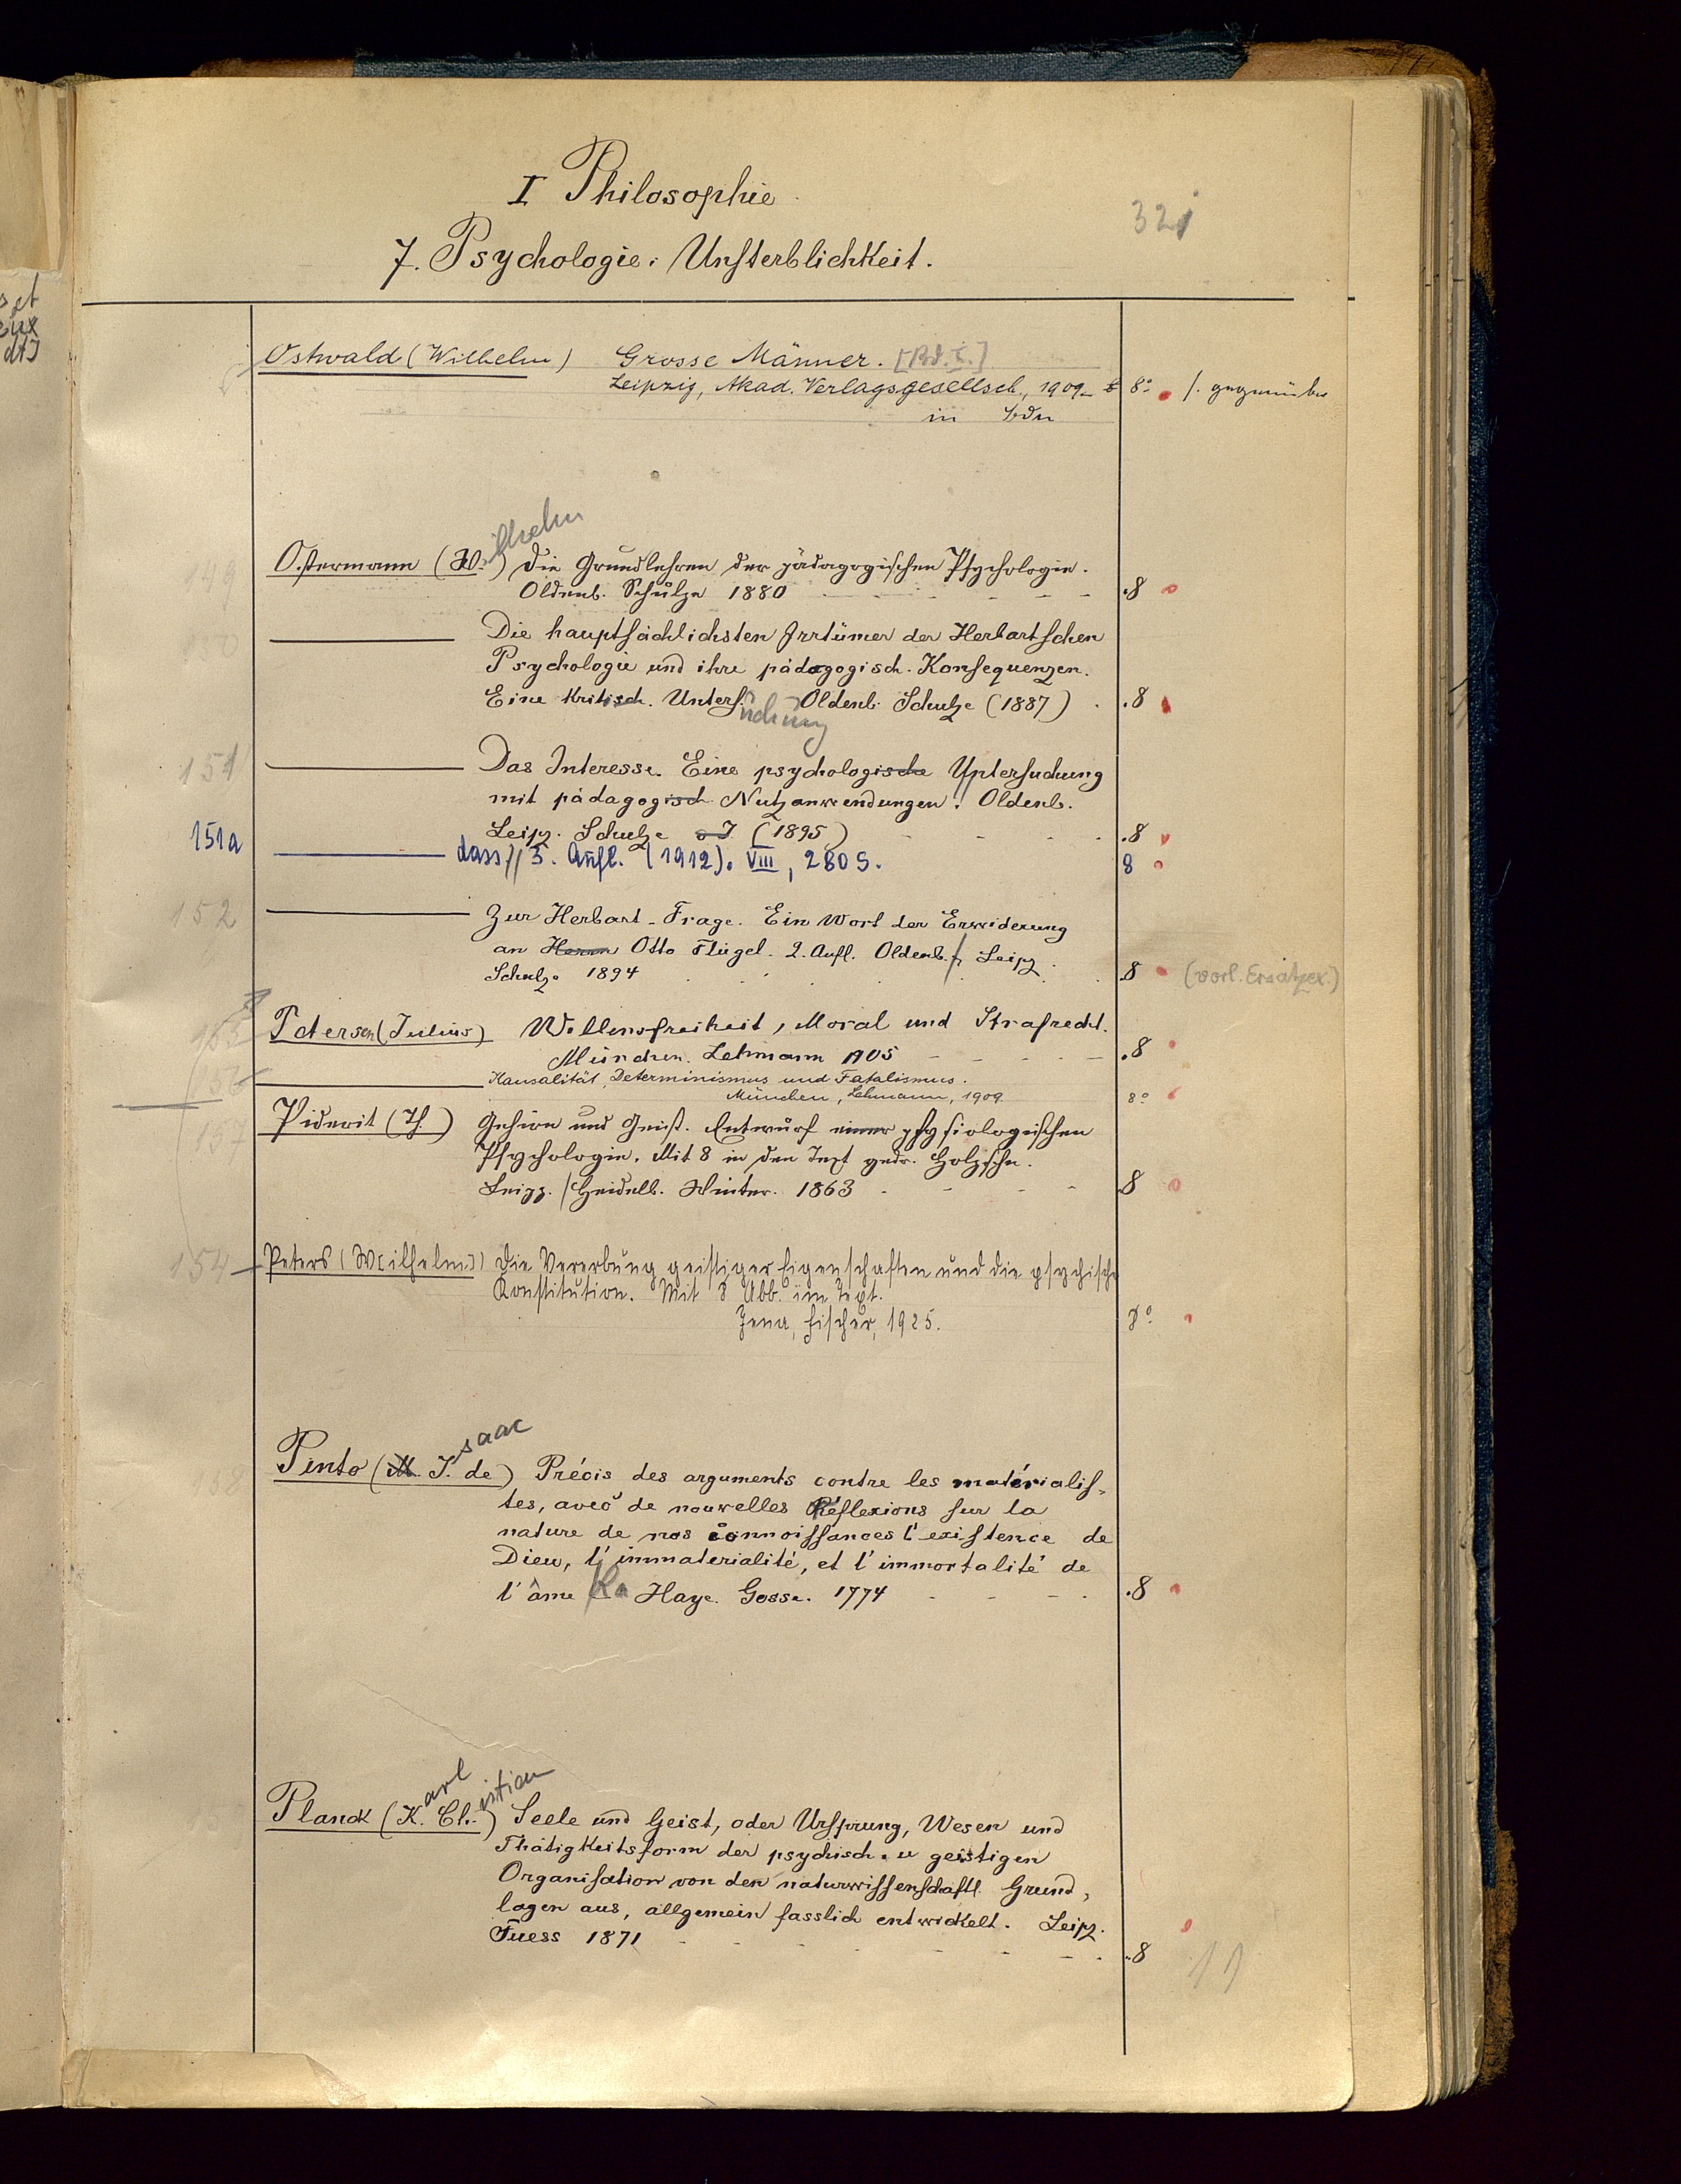 I Philosophie
32
7. Psychologie. Unsterblichkeit.
Ostwald (Wilhelm) Grosse Männer. [Bd. I.]
Leipzig, Akad. Verlagsgesellsch., 1909- 8° s. gegenüber
in Bdn
149 Ostermann (W.ilhelm) Die Grundlehren der pädagogischen Psychologie.
Oldenb. Schulze 1880 - - - .8
150 Die hauptsächlichsten Irrtümer der Herbartschen
Psychologie und ihre pädagogisch. Konsequenzen.
Eine kritisch. Untersuchung Oldenb. Schulze (1887) . .8
151 Das Interesse. Eine psychologische Untersuchung
mit pädagogisch Nutzanwendungen. Oldenb.
Leipz. Schulze o J (1895) - - - .8
151a dass. 3. Aufl. (1912). VIII, 280 S. 8
152 Zur Herbart-Frage. Ein Wort der Erwiderung
an Herrn Otto Flügel. 2. Aufl. Oldenb. Leipz.
Schulze 1894 . . . .8 (vorl. Ersatzex.)
Petersen (Julius) Willensfreiheit, Moral und Strafrecht.
München. Lehmann 1905 - - - .8
156 Kausalität, Determinismus und Fatalismus.
München, Lehmann, 1909. 8°
157 Piderit (Th.) Gehirn und Geist. Entwurf einer physiologischen
Psychologie. Mit 8 in den Text gedr. Holzschn.
Leipz. / Heidelb. Winter. 1863 - - - .8
154 Peters (W[ilhelm]) Die Vererbung geistiger Eigenschaften und die psychische
Konstitution. Mit 8 Abb. im Text.
Jena, Fischer, 1925. 8°
158 Pinto (M. I.saac de) Précis des arguments contre les matérialis-
tes, avec de nouvelles Réflexions sur la
nature de nos connoissances l'existence de
Dieu, l'immaterialité, et l'immortalité de
l'âme La Haye. Gosse. 1774 - - - .8
Planck (K.arl Chr.istian) Seele und Geist, oder Ursprung, Wesen und
Thätigkeitsform der psychisch. u geistigen
Organisation von den naturwissenschaftl. Grund-
lagen aus, allgemein fasslich entwickelt. Leipz.
Fuess 1871 - - - .8
11